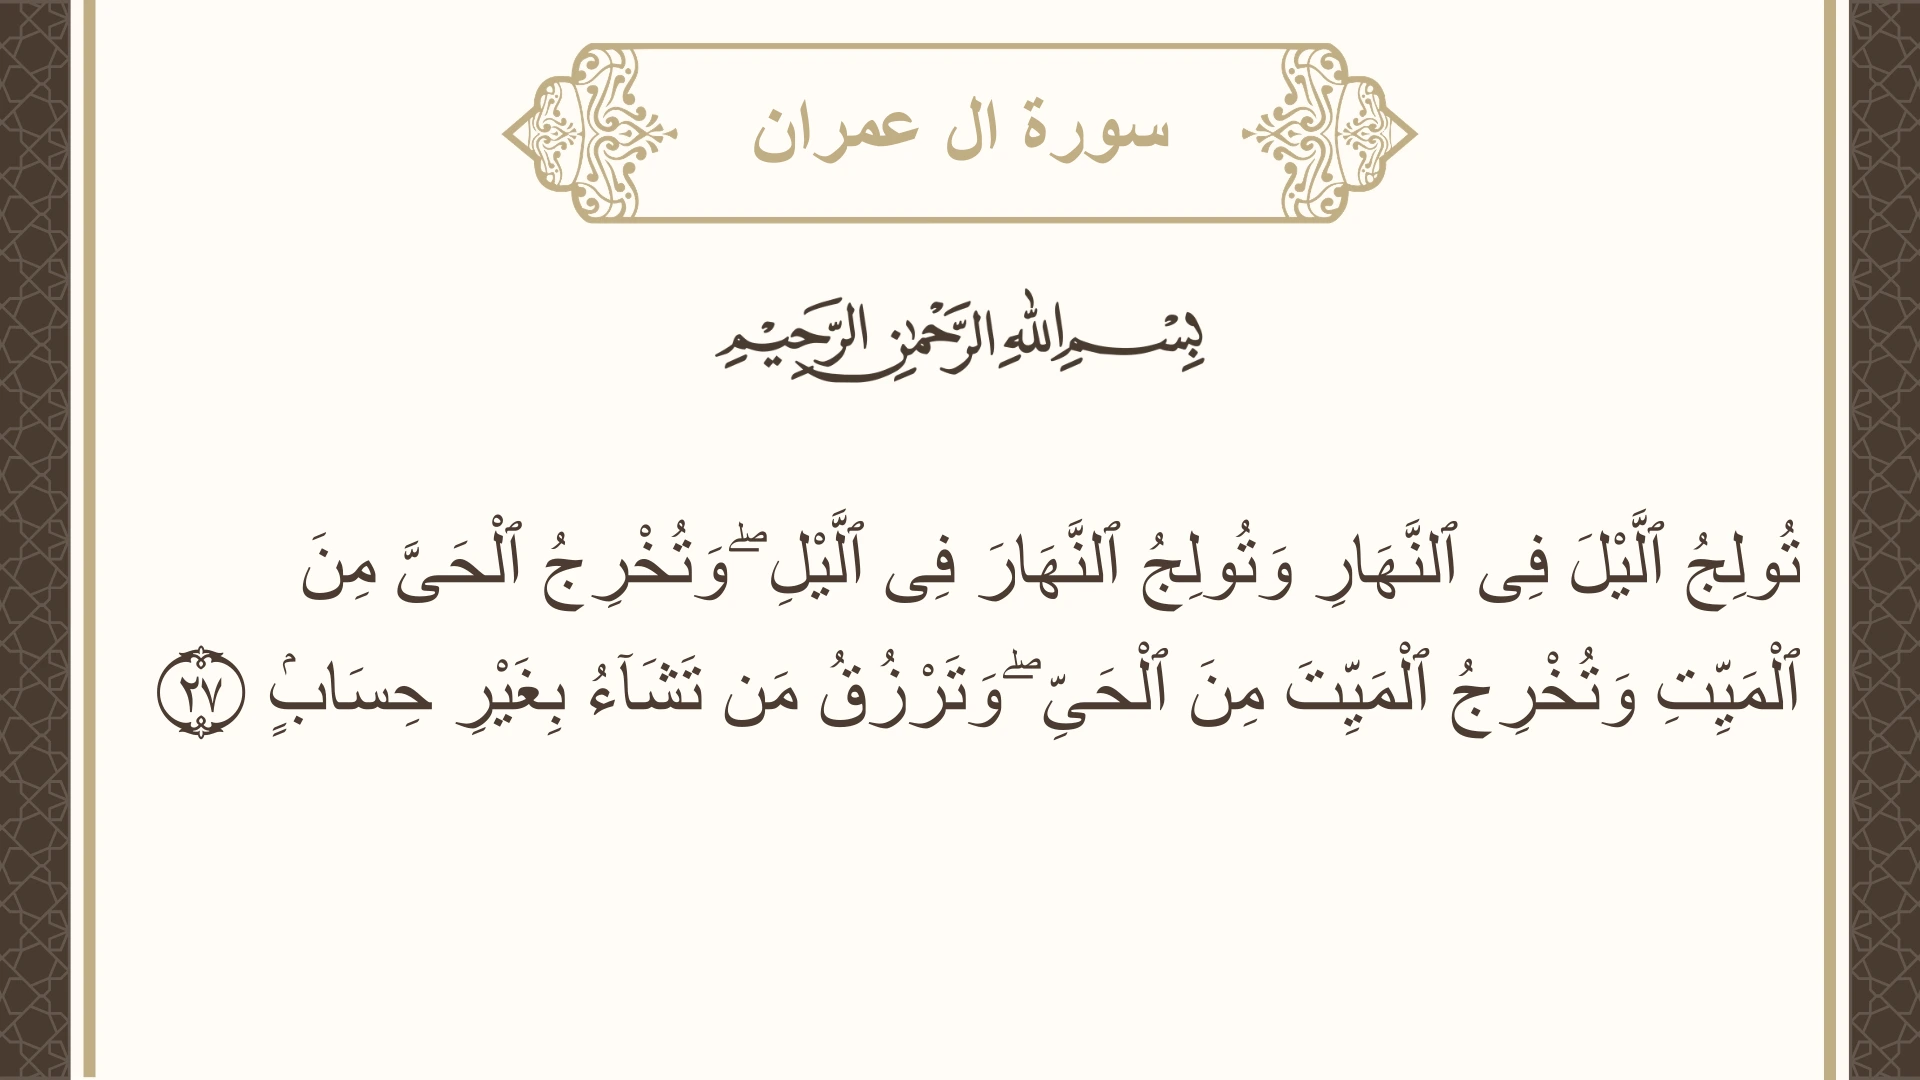 سورة ال عمران
بِسْمِ اللهِ الرَّحْمٰنِ الرَّحِيْمِ
تُولِجُ ٱلَّيْلَ فِى ٱلنَّهَارِ وَتُولِجُ ٱلنَّهَارَ فِى ٱلَّيْلِ ۖ وَتُخْرِجُ ٱلْحَىَّ مِنَ
ٱلْمَيِّتِ وَتُخْرِجُ ٱلْمَيِّتَ مِنَ ٱلْحَىِّ ۖ وَتَرْزُقُ مَن تَشَآءُ بِغَيْرِ حِسَابٍۢ ٢٧